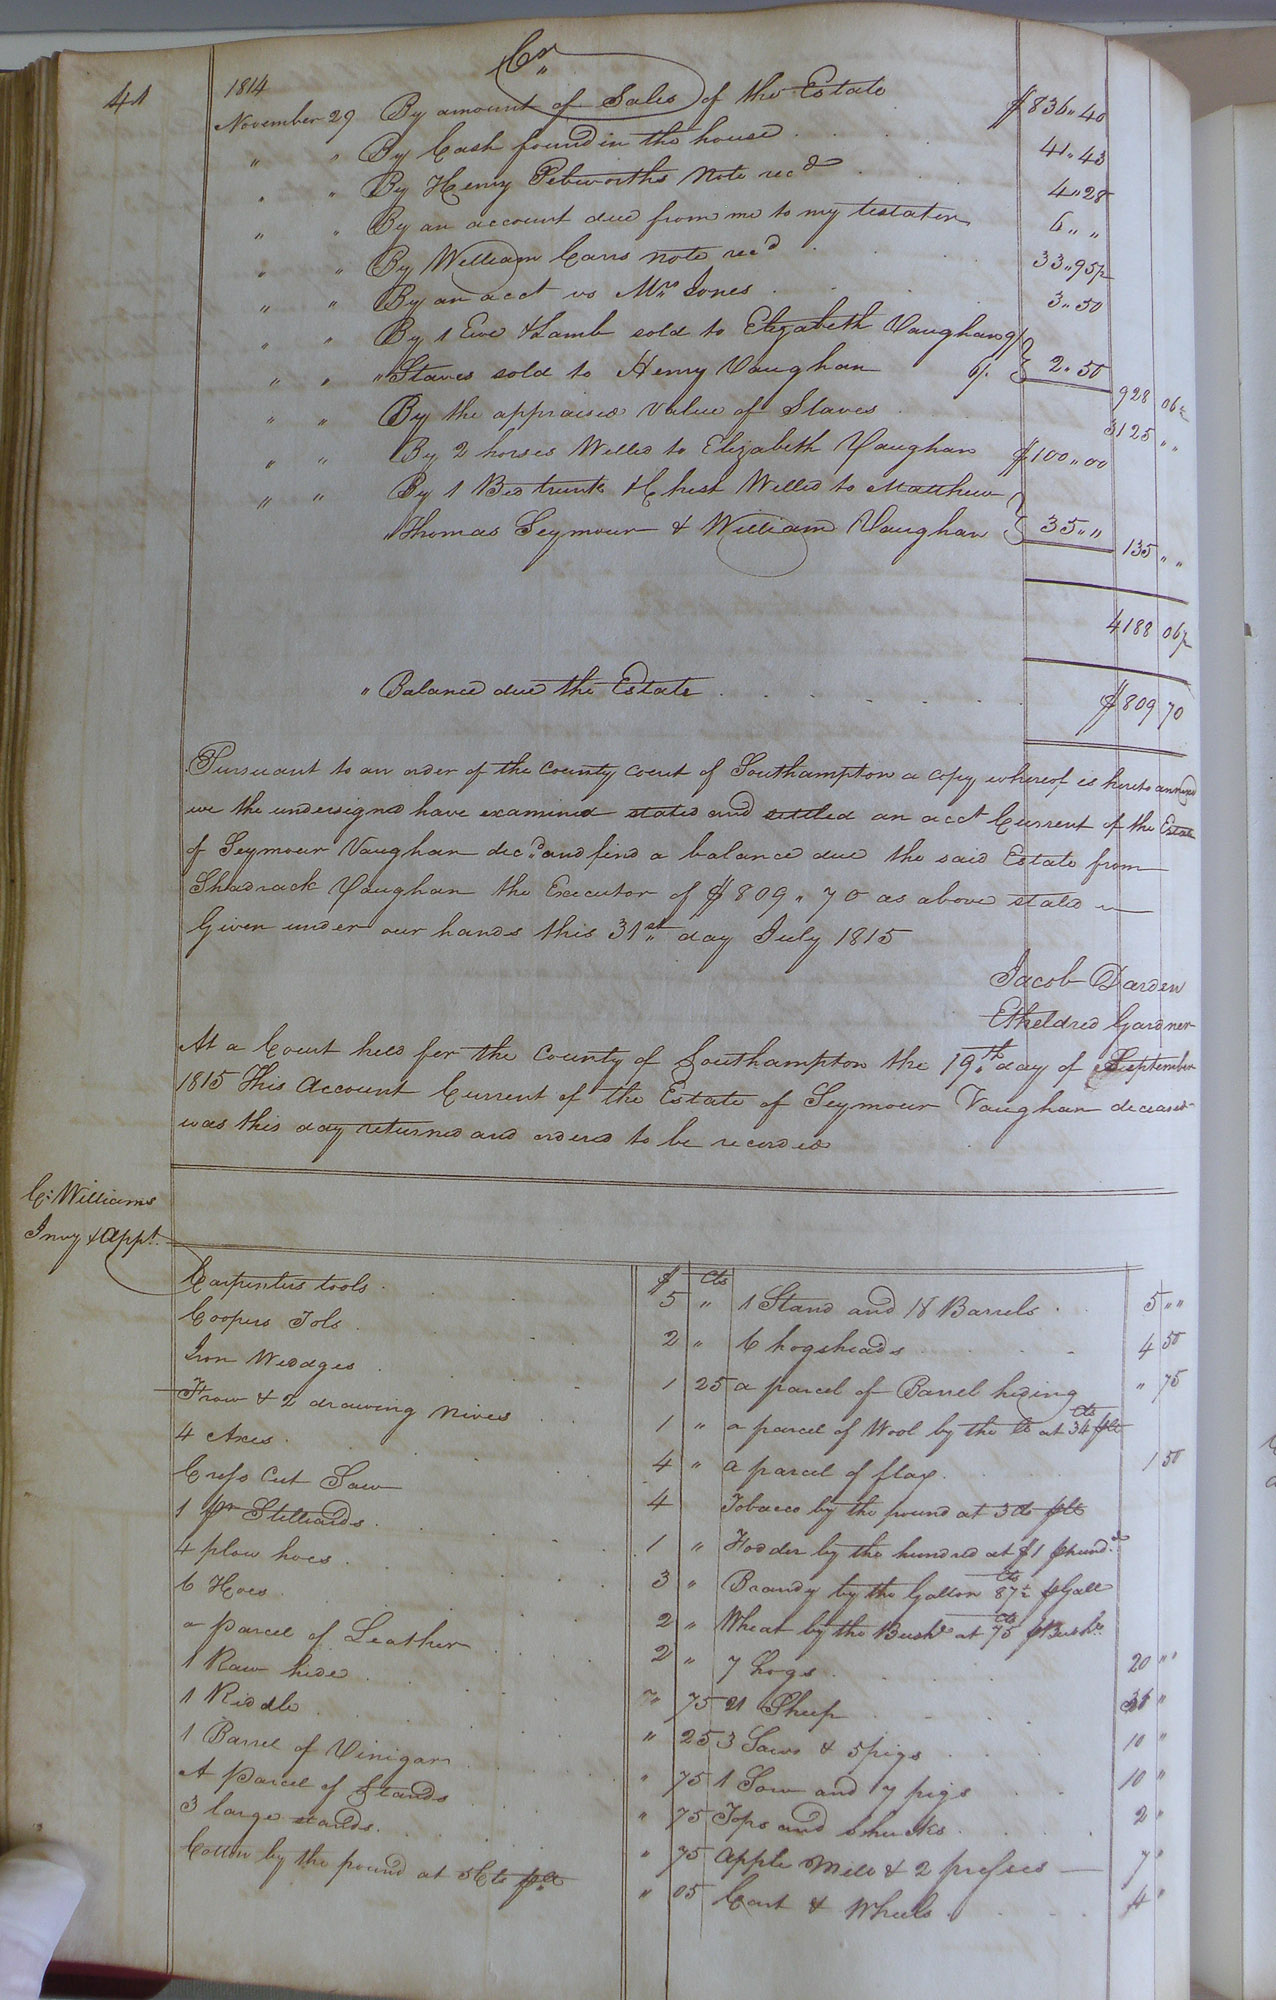 41
Cr
1814
November 29 By amount of Sales of the Estate $836,,40
,, ,, By Cash found in the house 41,,43
,, ,, By Henry Pebworths note recd 4,,28
,, ,, By an account due from me to my testator 6,, ,,
,, ,, By William Carrs note recd 33,,95½
,, ,, By an acct vs Mrs Jones 3,,50
,, ,, By 1 Ewe & Lamb sold to Elizabeth Vaughan 9/
,, ,, ,, Staves sold to Henry Vaughan 6/. } 2,,50 928 06½
,, ,, By the appraised value of Slaves 3125 ,,
,, ,, By 2 horses Willed to Elizabeth Vaughan $100,,00
,, ,, By 1 Bed trunk & Chest Willed to Matthew
,, Thomas Seymour & William Vaughan } 35,,,, 135 ,, ,,
4188 06½
,, Balance due the Estate $809 70
Pursuant to an order of the county court of Southampton a copy whereof is hereto annexed
we the undersigned have examined stated and settled an acct Current of the Estate
of Seymour Vaughan decd and find a balance due the said Estate from
Shadrack Vaughan the Executor of $809,,70 as above stated
Given under our hands this 31st day July 1815
Jacob Darden
Etheldred Gardner
At a Court held for the County of Southampton the 19th day of September
1815 This Account Current of the Estate of Seymour Vaughan deceased
was this day returned and ordered to be recorded
C: Williams
Invy & Appt.
$ Cts
Carpenters tools 5 ,,
Coopers Tols 2 ,,
Iron Wedges 1 25
Frow & 2 drawing nives 1 ,,
4 Axes 4 ,,
Cross Cut Saw 4
1 pr Stilliards 1 ,,
4 plow hoes 3 ,,
6 Hoes 2 ,,
a parcel of Leather 2 ,,
1 Raw hide 75
1 Riddle ,, 25
1 Barrel of Vinigar ,, 75
A Parcel of Stands ,, 75
3 large stands ,, 75
Cotton by the pound at 5Cts ,, 05
1 Stand and 18 Barrels 5 ,, ,,
6 hogsheads 4 50
a parcel of Barrel heding ,, 75
a parcel of Wool by the lb at 34 Cts
a parcel of flax 1 50
Tobacco by the pound at 3 Cts
Fodder by the hundred at $1 hund.d
Brandy by the Gallon 87½ Cts Gall
Wheat by the Bushl at 75 Cts Bushl
7 hogs 20 ,, ,,
21 Sheep ,,
3 Sows & 5 pigs 10 ,,
1 Sow and 7 pigs 10 ,,
Tops and Shucks 2 ,,
Apple Mill & 2 presses 7 ,,
Cart & Wheels 4 ,,